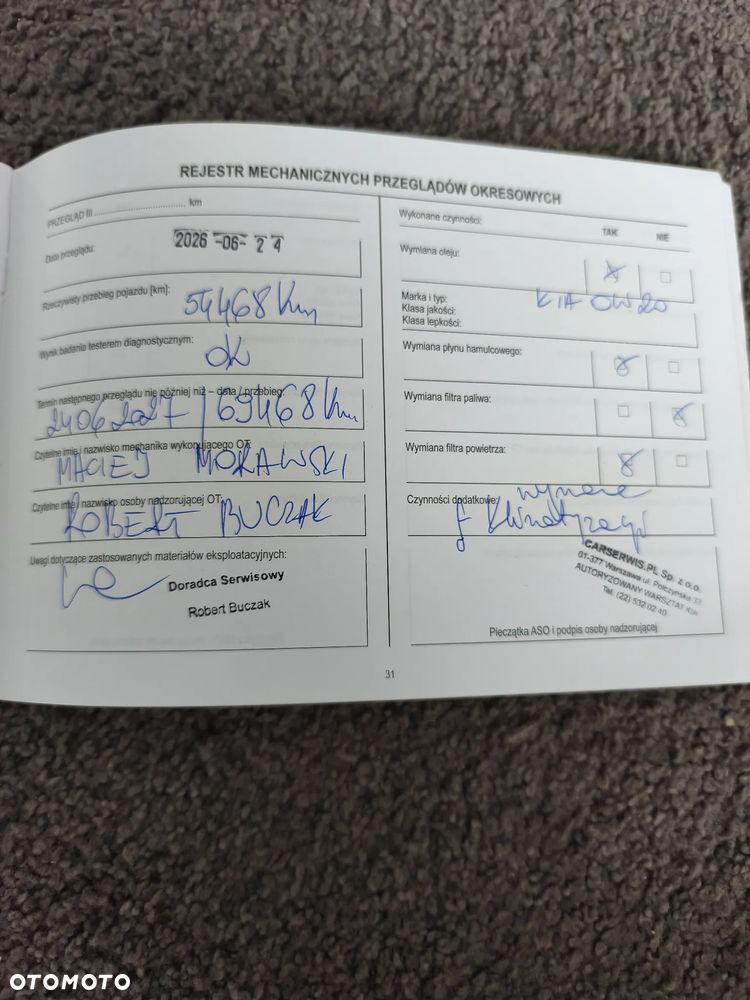 REJESTR MECHANICZNYCH PRZEGLĄDÓW OKRESOWYCH
PRZEGLĄD III .................................. km
Data przeglądu:
2026 -06- 24
Rzeczywisty przebieg pojazdu [km]:
54468 Km
Wynik badania testerem diagnostycznym:
OK
Termin następnego przeglądu nie później niż – data / przebieg:
24062027 / 69468 Km
Czytelne imię i nazwisko mechanika wykonującego OT:
MACIEJ MORAWSKI
Czytelne imię i nazwisko osoby nadzorującej OT:
ROBERT BUCZAK
Uwagi dotyczące zastosowanych materiałów eksploatacyjnych:
Doradca Serwisowy
Robert Buczak
Wykonane czynności:
TAK NIE
Wymiana oleju:
Marka i typ:
KIA 0W20
Klasa jakości:
Klasa lepkości:
Wymiana płynu hamulcowego:
Wymiana filtra paliwa:
Wymiana filtra powietrza:
Czynności dodatkowe:
f klimatyzacji
CARSERWIS.PL Sp. z o.o.
01-377 Warszawa ul. Połczyńska 33
AUTORYZOWANY WARSZTAT KIA
Tel. (22) 532 02 40
Pieczątka ASO i podpis osoby nadzorującej
31
OTOMOTO